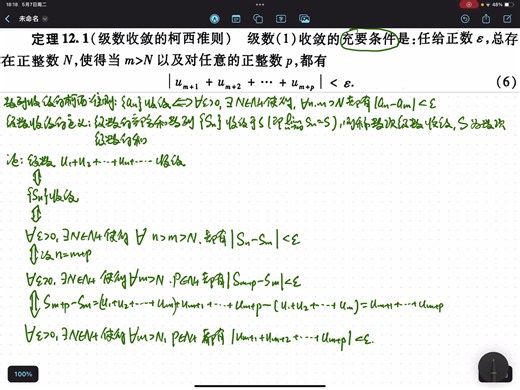 18:18 5月7日周二
48%
未命名
定理12.1(级数收敛的柯西准则) 级数(1)收敛的充要条件是:任给正数ε,总存
在正整数N,使得当m>N以及对任意的正整数p,都有
|u_{m+1} + u_{m+2} + ⋯ + u_{m+p}| < ε. (6)
数列收敛的柯西准则:{an}收敛⇔∀ε>0,∃N∈N+使得,∀n.m>N都有|an-am|<ε
级数收敛的定义:级数的部分和数列{Sn}收敛于S(即lim_{n→∞}Sn=S),则称数项级数收敛,S为数项
级数的和
证:级数u1+u2+⋯+un+⋯收敛
⇕
{Sn}收敛
⇕
∀ε>0,∃N∈N+使得∀n>m>N.都有|Sn-Sm|<ε
⇕设n=m+p
∀ε>0,∃N∈N+使得∀m>N.p∈N+都有|Sm+p-Sm|<ε
⇕Sm+p-Sm=(u1+u2+⋯+um)+um+1+⋯+um+p-(u1+u2+⋯+um)=um+1+⋯+um+p
∀ε>0,∃N∈N+使得∀m>N,p∈N+都有|um+1+um+2+⋯+um+p|<ε.
100%